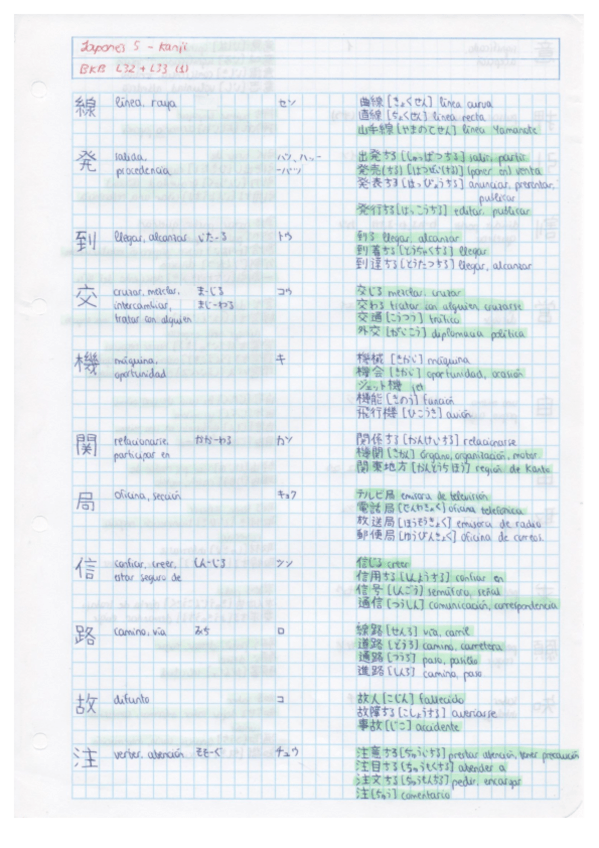 Japonés 5 - Kanji
BKB L32 + L33 (1)
線 línea, raya セン 曲線 [きょくせん] línea curva
直線 [ちょくせん] línea recta
山手線 [やまのてせん] línea Yamanote
発 salida, procedencia ハツ、ハッー ーパツ 出発する [しゅっぱつする] salir, partir
発売(する) [はつばい(する)] (poner en) venta
発表する [はっぴょうする] anunciar, presentar, publicar
発行する [はっこうする] editar, publicar
到 llegar, alcanzar いた-る トウ 到る llegar, alcanzar
到着する [とうちゃくする] llegar
到達する [とうたつする] llegar, alcanzar
交 cruzar, mezclar, intercambiar, tratar con alguien ま-じる まじ-わる コウ 交じる mezclar, cruzar
交わる tratar con alguien, cruzarse
交通 [こうつう] tráfico
外交 [がいこう] diplomacia, política
機 máquina, oportunidad キ 機械 [きかい] máquina
機会 [きかい] oportunidad, ocasión
ジェット機 jet
機能 [きのう] función
飛行機 [ひこうき] avión
関 relacionarse, participar en かか-わる カン 関係する [かんけいする] relacionarse
機関 [きかん] órgano, organización, motor
関東地方 [かんとうちほう] región de Kanto
局 oficina, sección キョク テレビ局 emisora de televisión
電話局 [でんわきょく] oficina telefónica
放送局 [ほうそうきょく] emisora de radio
郵便局 [ゆうびんきょく] oficina de correos
信 confiar, creer, estar seguro de しん-じる シン 信じる creer
信用する [しんようする] confiar en
信号 [しんごう] semáforo, señal
通信 [つうしん] comunicación, correspondencia
路 camino, vía みち ロ 線路 [せんろ] vía, carril
道路 [どうろ] camino, carretera
通路 [つうろ] paso, pasillo
進路 [しんろ] camino, paso
故 difunto コ 故人 [こじん] fallecido
故障する [こしょうする] averiarse
事故 [じこ] accidente
注 verter, atención そそ-ぐ チュウ 注意する [ちゅういする] prestar atención, tener precaución
注目する [ちゅうもくする] atender a
注文する [ちゅうもんする] pedir, encargar
注 [ちゅう] comentario